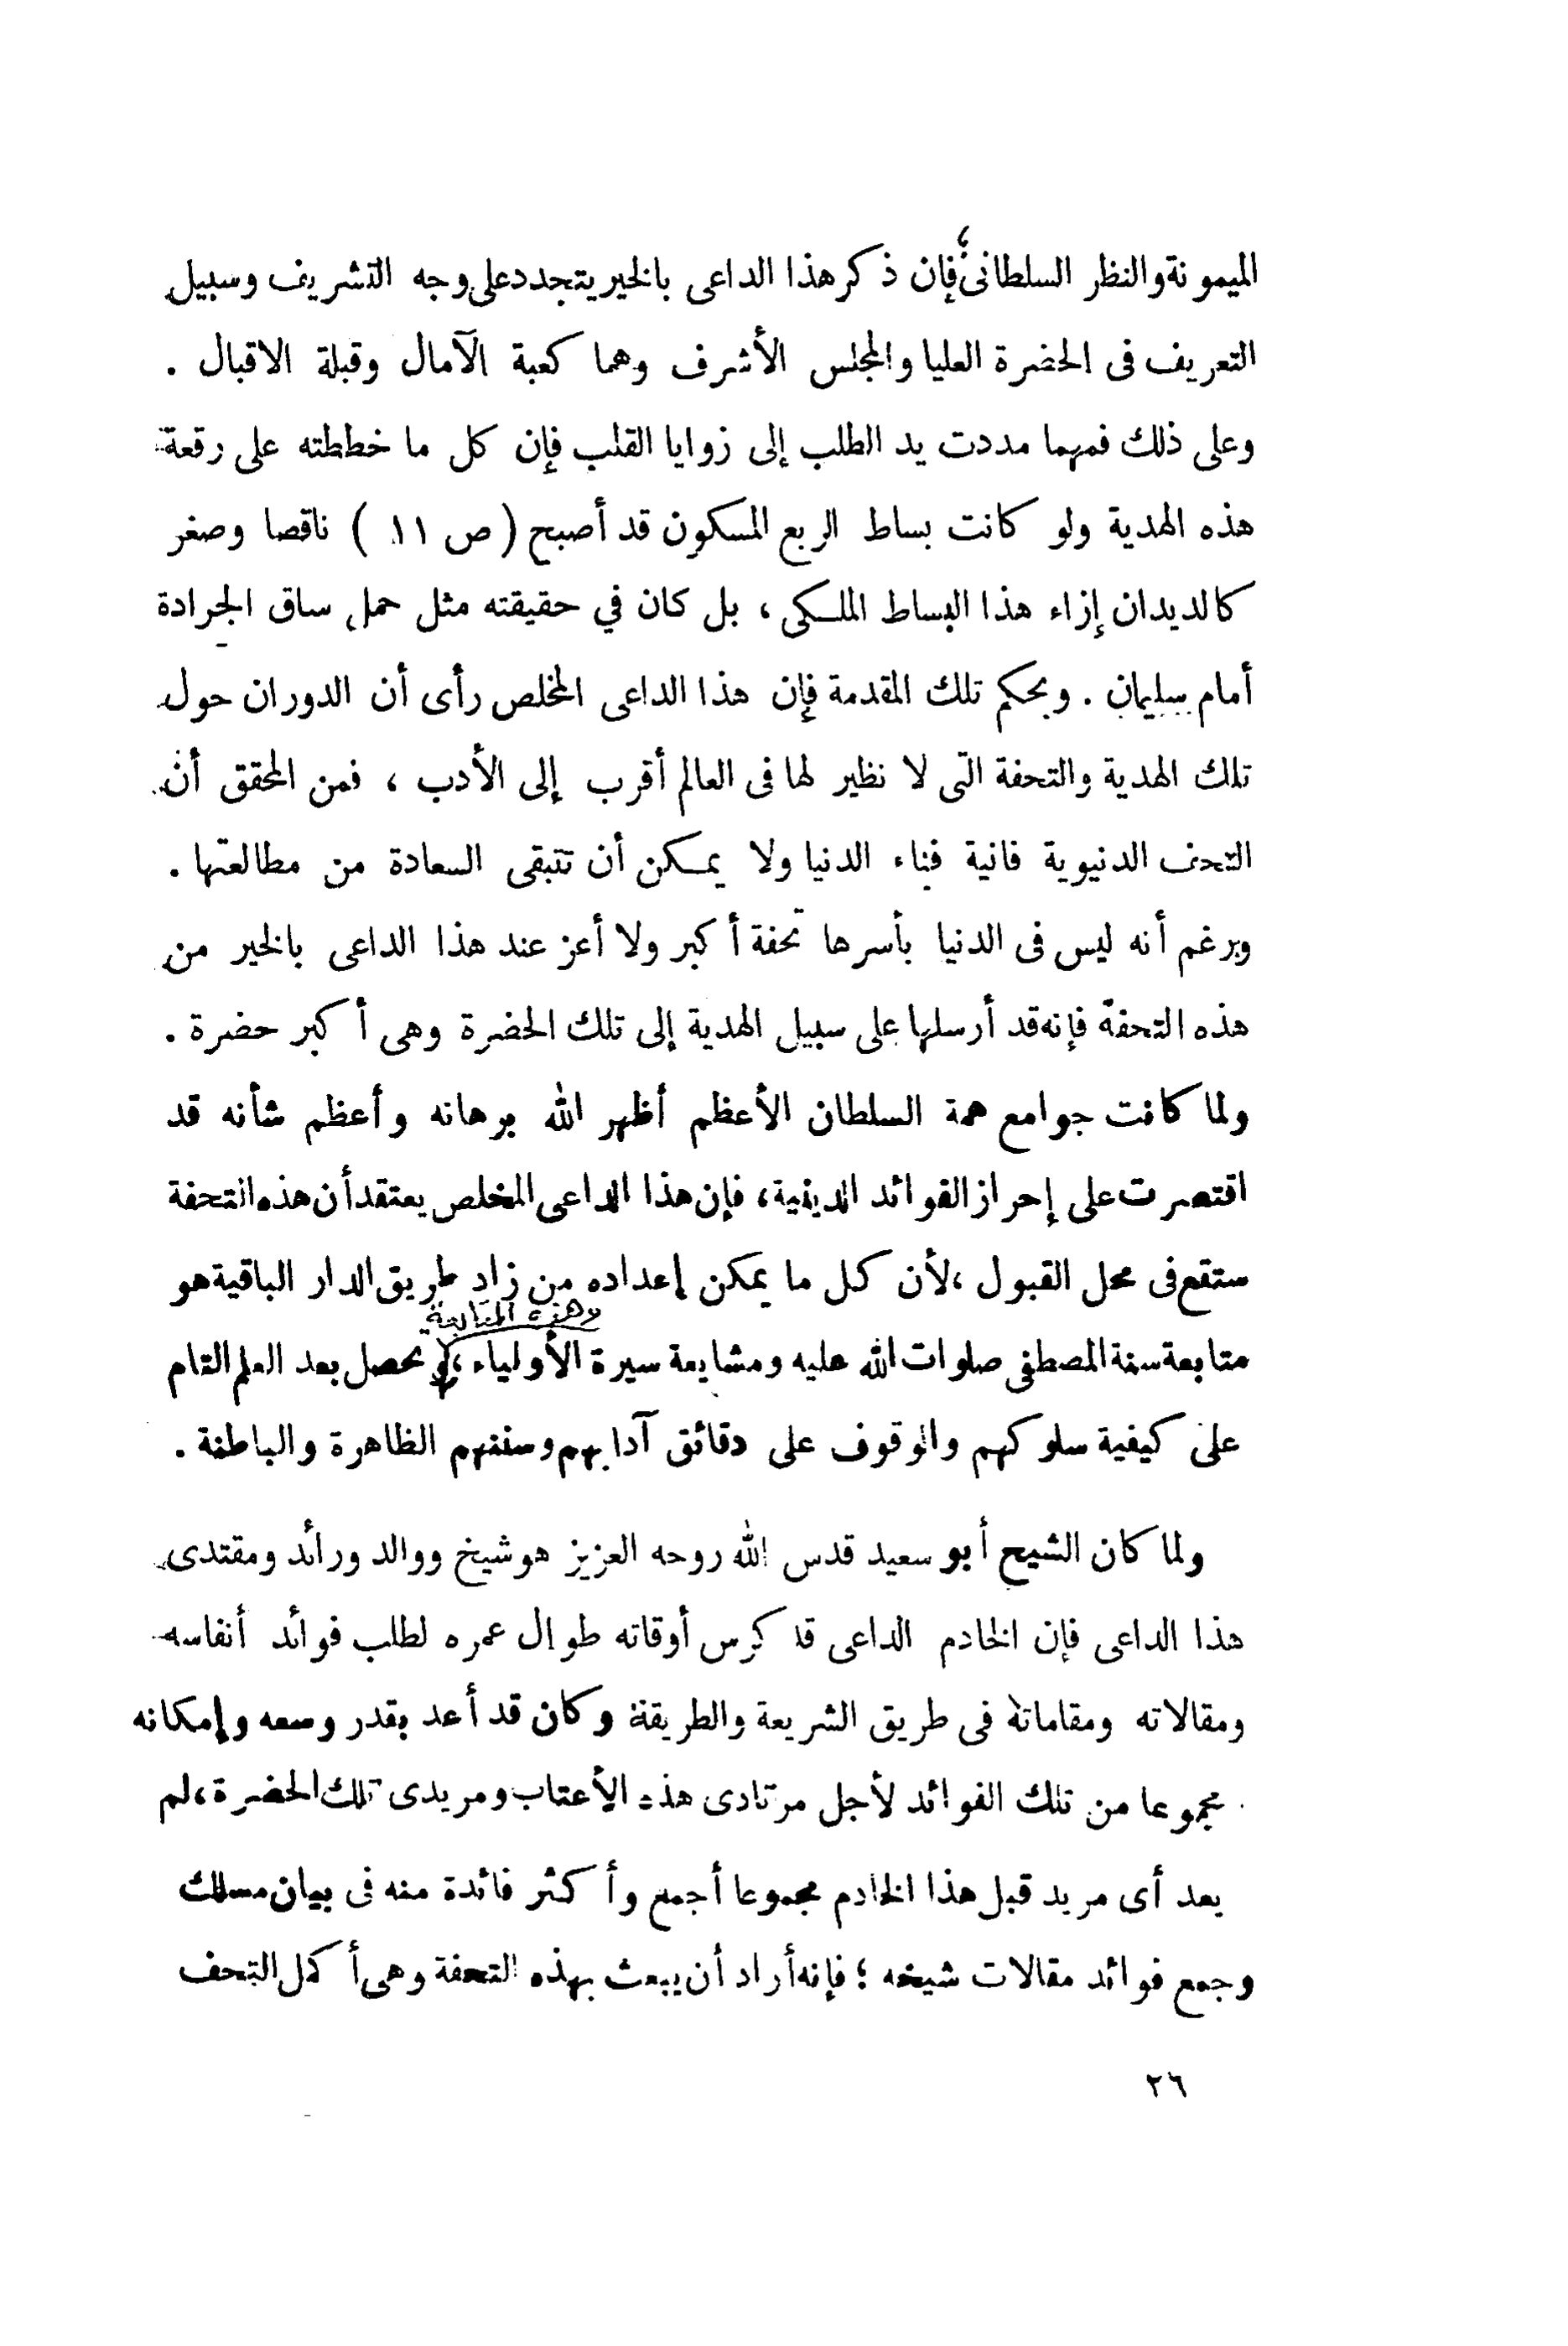 الميمونة والنظر السلطانى؛ فإن ذكر هذا الداعى بالخير يتجدد على وجه التشريف وسبيل
التعريف فى الحضرة العليا والمجلس الأشرف وهما كعبة الآمال وقبلة الاقبال .
وعلى ذلك فمهما مددت يد الطلب إلى زوايا القلب فإن كل ما خططته على رقعة
هذه الهدية ولو كانت بساط الربع المسكون قد أصبح ( ص ١١ ) ناقصا وصغر
كالديدان إزاء هذا البساط الملكى ، بل كان في حقيقته مثل حمل ساق الجرادة
أمام سليمان . وبحكم تلك المقدمة فإن هذا الداعى المخلص رأى أن الدوران حول
تلك الهدية والتحفة التى لا نظير لها فى العالم أقرب إلى الأدب ، فمن المحقق أن
التحف الدنيوية فانية فناء الدنيا ولا يمكن أن تتبقى السعادة من مطالعتها .
وبرغم أنه ليس فى الدنيا بأسرها تحفة أكبر ولا أعز عند هذا الداعى بالخير من
هذه التحفة فإنه قد أرسلها على سبيل الهدية إلى تلك الحضرة وهى أكبر حضرة .
ولما كانت جوامع همة السلطان الأعظم أظهر الله برهانه وأعظم شأنه قد
اقتصرت على إحراز الفوائد الدينية، فإن هذا الداعى المخلص يعتقد أن هذه التحفة
ستقع فى محل القبول ،لأن كل ما يمكن إعداده من زاد طريق الدار الباقية هو
وهذه المتابعة
متابعة سنة المصطفى صلوات الله عليه ومشايعة سيرة الأولياء، تحصل بعد العلم التام
على كيفية سلوكهم والوقوف على دقائق آدابهم وسننهم الظاهرة والباطنة .
ولما كان الشيح أبو سعيد قدس الله روحه العزيز هو شيخ ووالد ورائد ومقتدى
هذا الداعى فإن الخادم الداعى قد كرس أوقاته طوال عمره لطلب فوائد أنفاسه
ومقالاته ومقاماته فى طريق الشريعة والطريقة وكان قد أعد بقدر وسعه وإمكانه
مجموعا من تلك الفوائد لأجل مرتادى هذه الأعتاب ومريدى تلك الحضرة،لم
يعد أى مريد قبل هذا الخادم مجموعا أجمع وأكثر فائدة منه فى بيان مسلك
وجمع فوائد مقالات شيخه ؛ فإنه أراد أن يبعث بهذه التحفة وهى أكمل التحف
٢٦